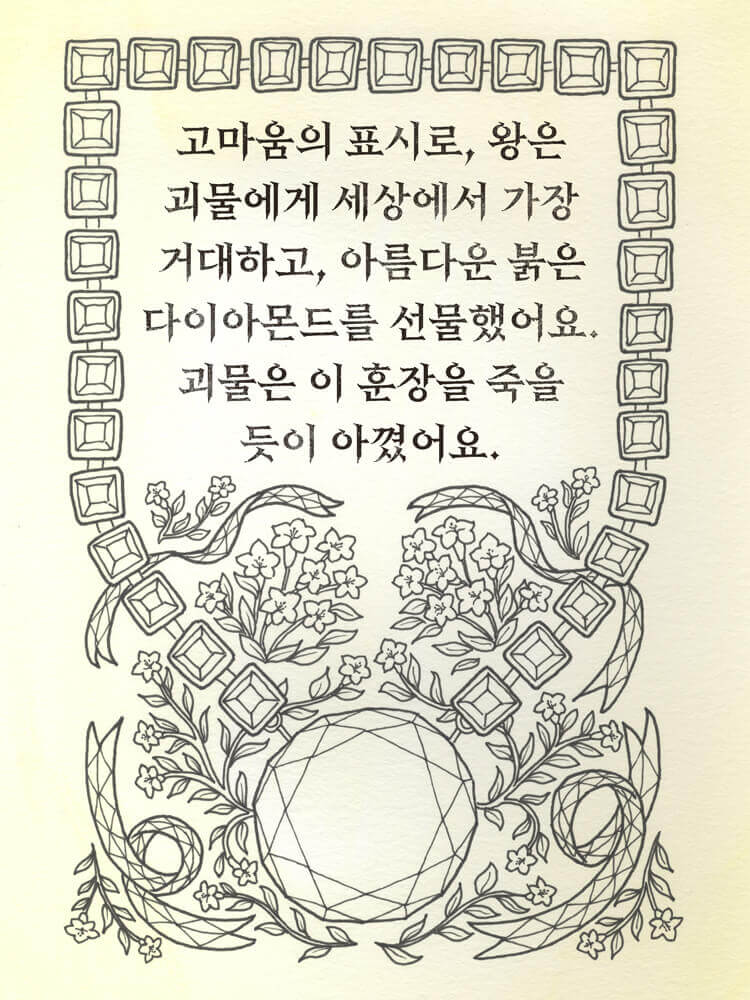 고마움의 표시로, 왕은
괴물에게 세상에서 가장
거대하고, 아름다운 붉은
다이아몬드를 선물했어요.
괴물은 이 훈장을 죽을
듯이 아꼈어요.